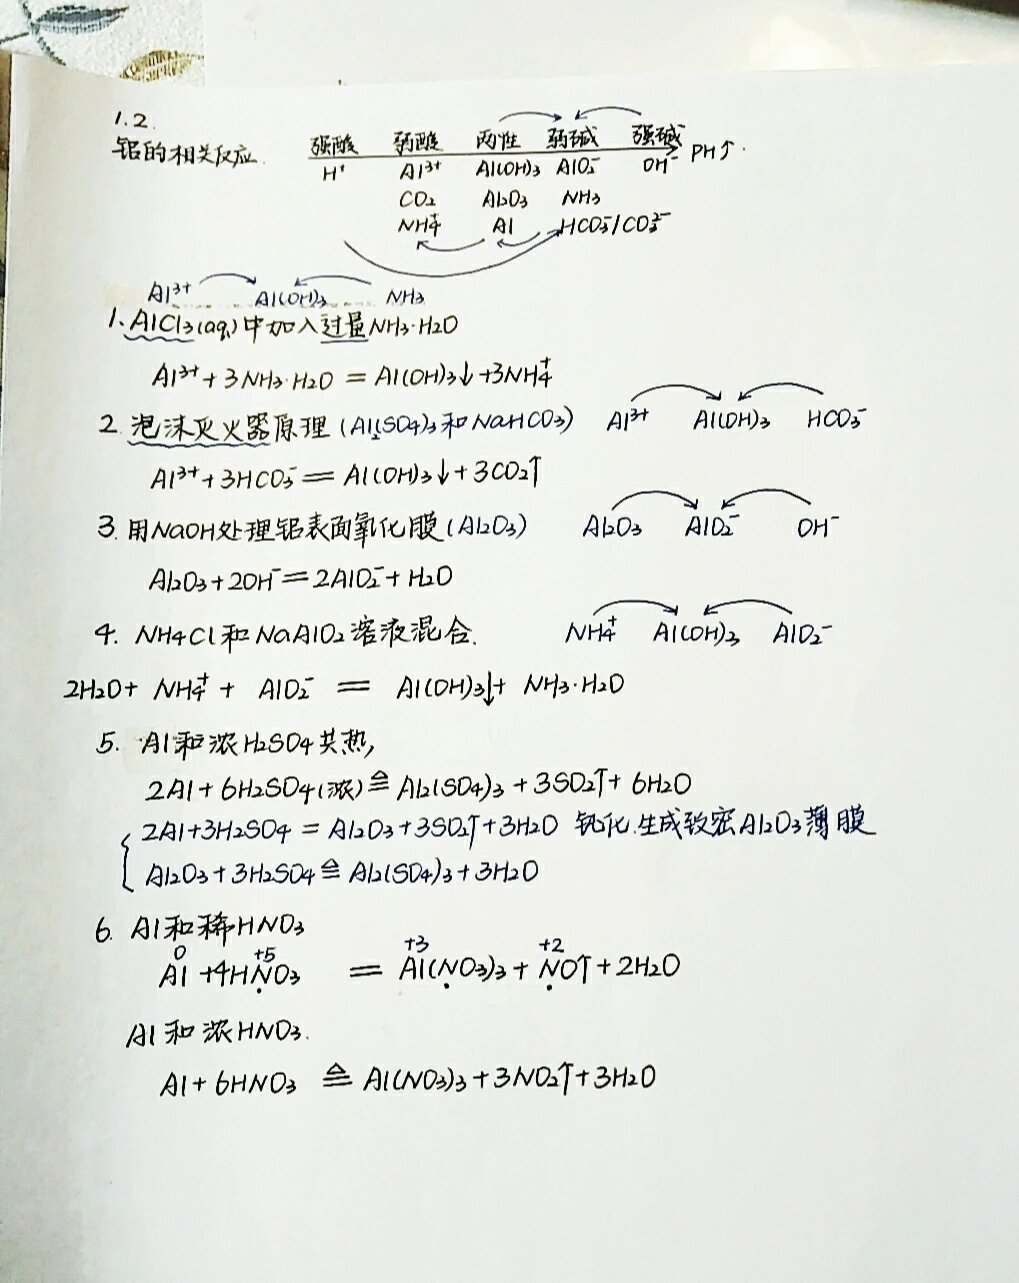 1.2.
铝的相关反应. 强酸 弱酸 两性 弱碱 强碱 PH↑.
H⁺ Al³⁺ Al(OH)₃ AlO₂⁻ OH⁻
CO₂ Al₂O₃ NH₃
NH₄⁺ Al HCO₃⁻/CO₃²⁻
Al³⁺ Al(OH)₃ NH₃
1. AlCl₃(aq)中加入过量NH₃·H₂O
Al³⁺+3NH₃·H₂O = Al(OH)₃↓+3NH₄⁺
2. 泡沫灭火器原理(Al₂(SO₄)₃和NaHCO₃) Al³⁺ Al(OH)₃ HCO₃⁻
Al³⁺+3HCO₃⁻ = Al(OH)₃↓+3CO₂↑
3. 用NaOH处理铝表面氧化膜(Al₂O₃) Al₂O₃ AlO₂⁻ OH⁻
Al₂O₃+2OH⁻=2AlO₂⁻+H₂O
4. NH₄Cl和NaAlO₂溶液混合. NH₄⁺ Al(OH)₃ AlO₂⁻
2H₂O+ NH₄⁺ + AlO₂⁻ = Al(OH)₃↓+ NH₃·H₂O
5. Al和浓H₂SO₄共热,
2Al+6H₂SO₄(浓)≙Al₂(SO₄)₃+3SO₂↑+6H₂O
2Al+3H₂SO₄=Al₂O₃+3SO₂↑+3H₂O 钝化.生成致密Al₂O₃薄膜
Al₂O₃+3H₂SO₄≙Al₂(SO₄)₃+3H₂O
6. Al和稀HNO₃
0 +5 +3 +2
Al+4HNO₃ = Al(NO₃)₃+NO↑+2H₂O
Al和浓HNO₃.
Al+6HNO₃ ≙ Al(NO₃)₃+3NO₂↑+3H₂O